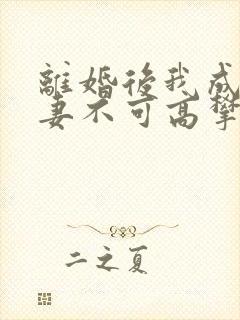 離婚後我成
妻不可高攀
二之夏